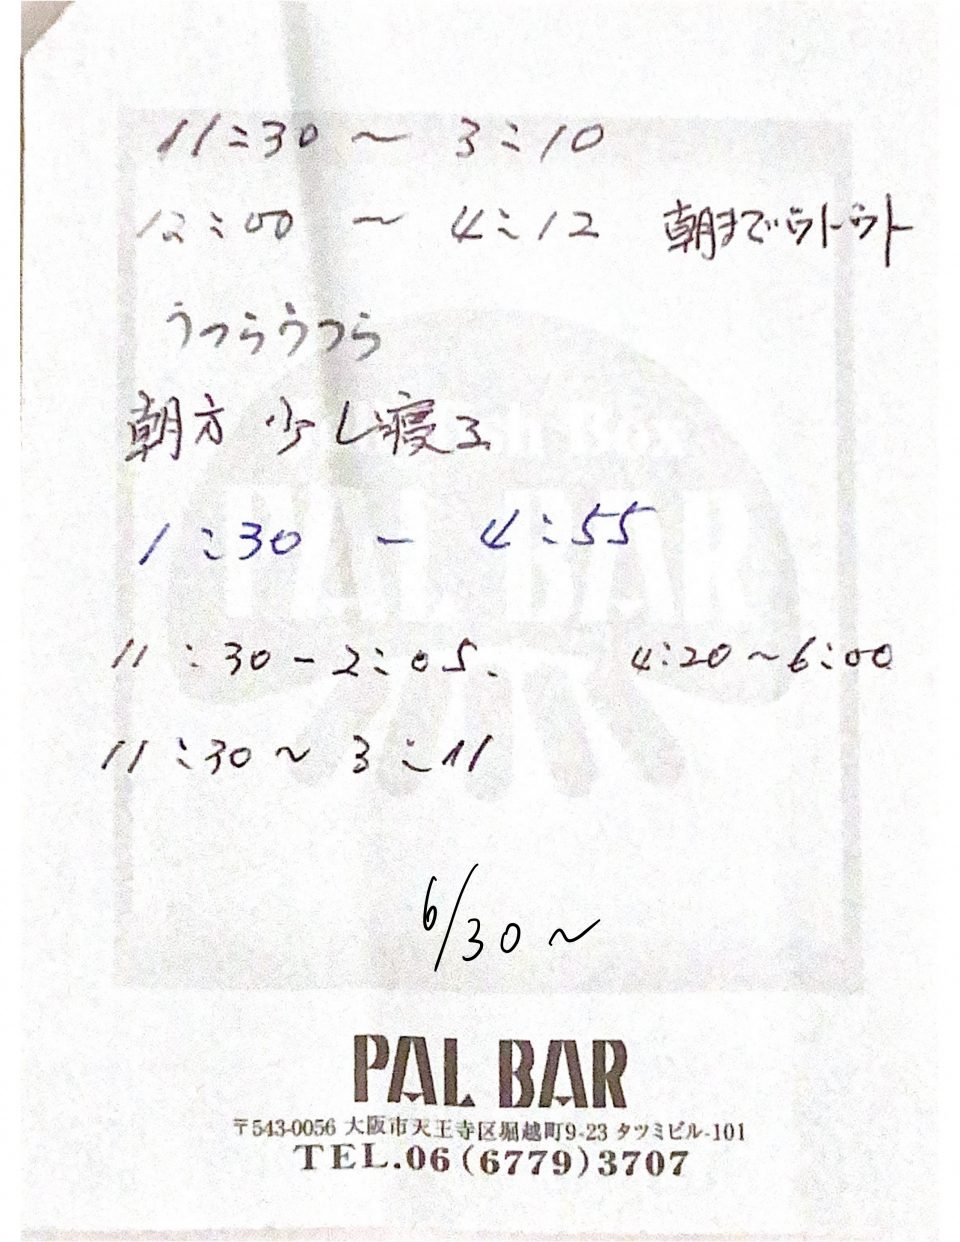 11:30 ~ 3:10
12:00 ~ 4:12 朝までウトウト
うつらうつら
朝方 少し寝る
1:30 - 4:55
11:30-2:05、 4:20~6:00
11:30~3:11
6/30~
PAL BAR
PAL BAR
〒543-0056 大阪市天王寺区堀越町9-23 タツミビル-101
TEL.06(6779)3707